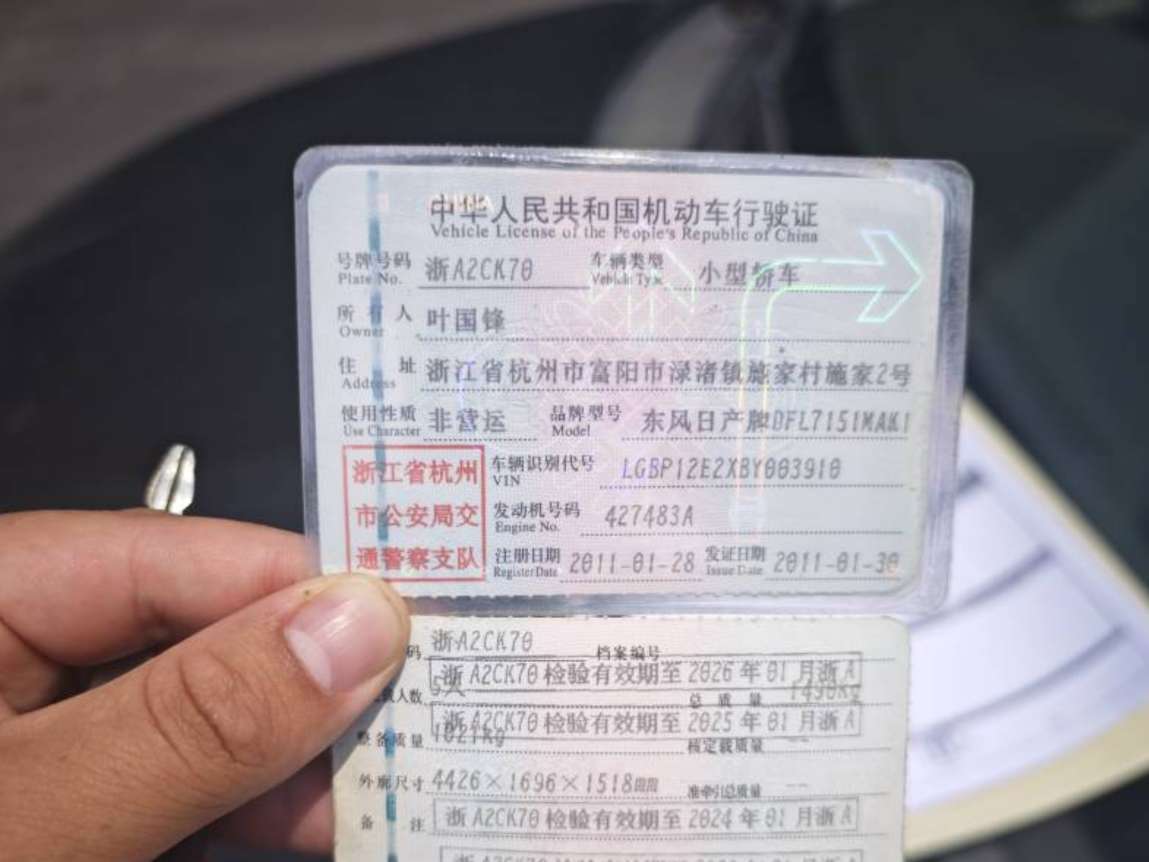 中华人民共和国机动车行驶证
Vehicle License of the People's Republic of China
号牌号码 浙A2CK70 车辆类型 小型轿车
Plate No. Vehicle Type
所有人 叶国锋
Owner
住址 浙江省杭州市富阳市渌渚镇施家村施家2号
Address
使用性质 非营运 品牌型号 东风日产牌DFL7151MAK1
Use Character Model
浙江省杭州
市公安局交
通警察支队
车辆识别代号 LGBP12E2XBY003910
VIN
发动机号码 427483A
Engine No.
注册日期 2011-01-28 发证日期 2011-01-30
Register Date Issue Date
码 浙A2CK70 档案编号
浙A2CK70检验有效期至2026年01月浙A
人数 5人 总质量 1490kg
浙A2CK70检验有效期至2025年01月浙A
整备质量 1021kg 核定载质量 --
外廓尺寸 4426×1696×1518 准牵引总质量 --
备注 浙A2CK70检验有效期至2024年01月浙A